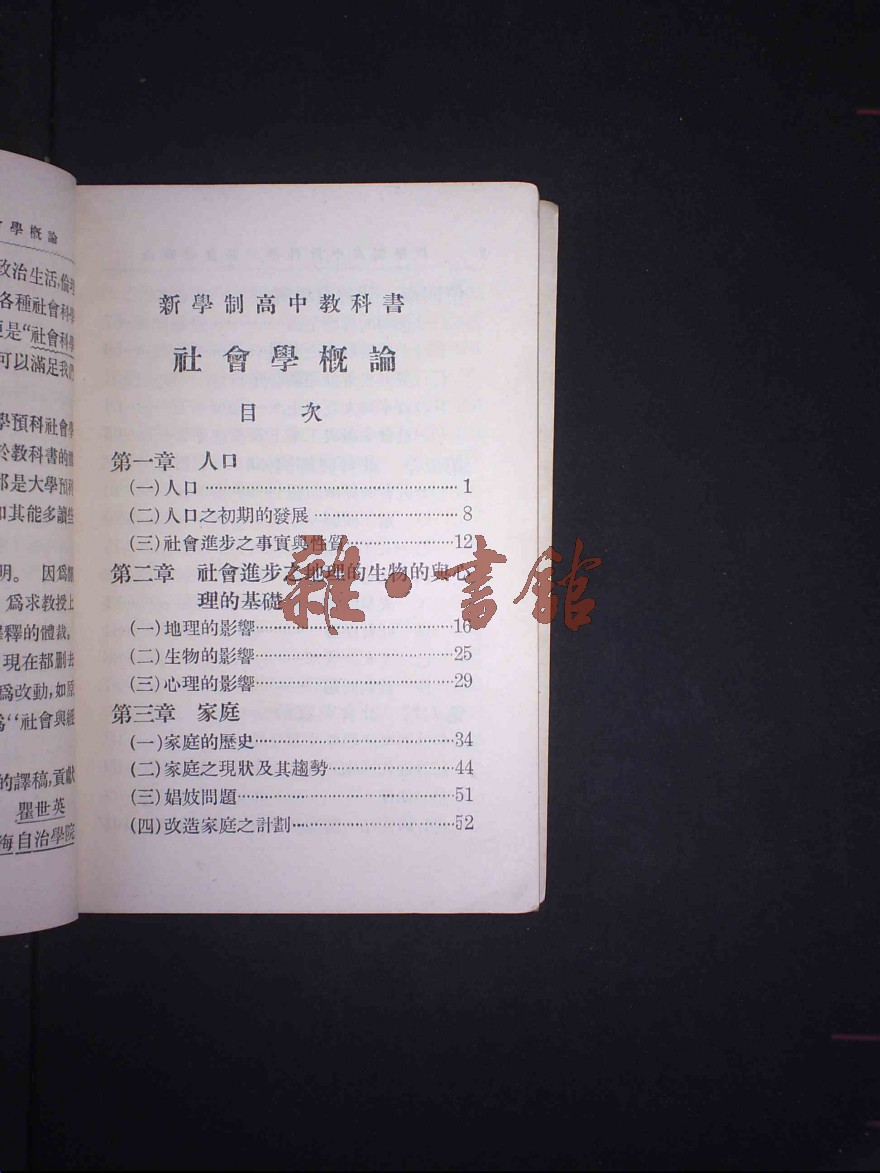 學概論
政治生活,倫理
各種社會科學
更是“社會科學
可以滿足我們
學預科社會學
於教科書的體
都是大學預科
和其能多讀些
明。 因爲
爲求教授上
釋的體裁,
現在都刪去
爲改動,如原
爲“社會與經
的譯稿,貢獻
瞿世英
海自治學院
新學制高中教科書
社會學概論
目 次
第一章 人口
(一)人口……1
(二)人口之初期的發展……8
(三)社會進步之事實與性質……12
第二章 社會進步之地理的生物的與心
理的基礎
(一)地理的影響……16
(二)生物的影響……25
(三)心理的影響……29
第三章 家庭
(一)家庭的歷史……34
(二)家庭之現狀及其趨勢……44
(三)娼妓問題……51
(四)改造家庭之計劃……52
雜·書館